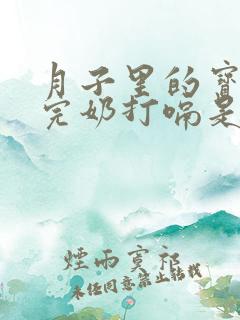 月子里的宝
完奶打嗝是
煙雨寞祁
未经同意禁止转载